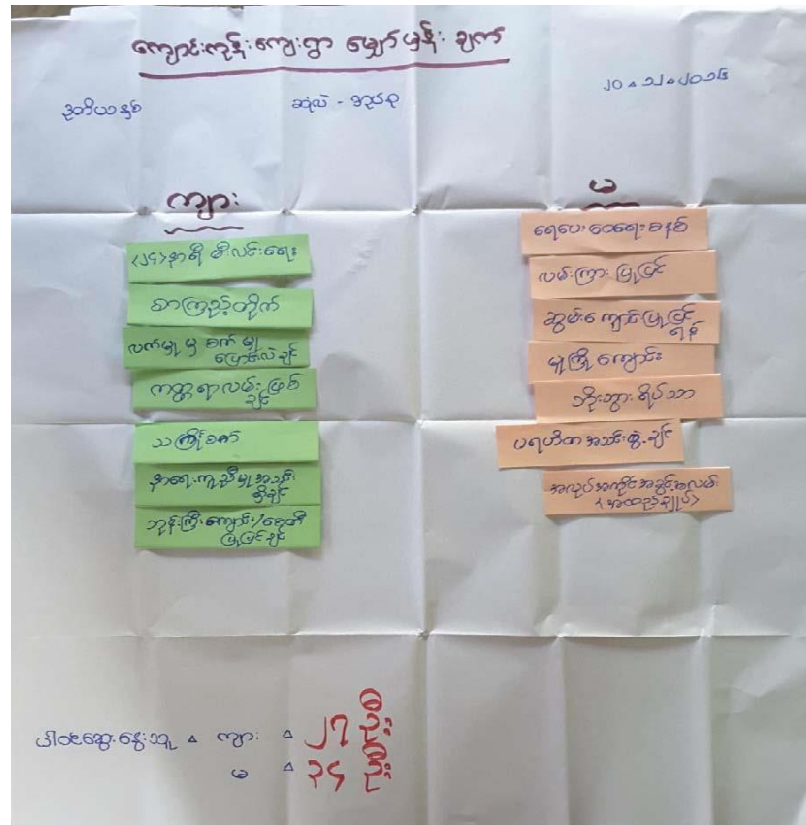 ကျောင်းကုန်းကျေးရွာ မျှော်မှန်းချက်
ဒုတိယနှစ်
ဆုံလဲ - အုပစု
ကျား
<၂၄>နာရီ မီးလင်းရေး
စာကြည့်တိုက်
လက်မှု မှ စက်မှု
ပြောင်းလဲချင်
ကတ္တရာလမ်းဖြစ်
ချင်
သကြိုစက်
နာရေးကူညီမှုအသင်း
ရှိချင်
ဘုန်းကြီးကျောင်း/စေတီ
ပြုပြင်ချင်
မ
ရေပေးဝေရေးစနစ်
လမ်းကြားပြုပြင်
ဆွမ်းကျောင်းပြုပြင်
ရန်
မူကြိုကျောင်း
ဘိုးဘွားရိပ်သာ
ပရဟိတအသင်းဖွဲ့ချင်
အလုပ်အကိုင်အခွင့်အလမ်း
<အထည်ချုပ်>
ပါဝင်ဆွေးနွေးသူ ကျား ၂၇ ဦး
မ ၃၄ ဦး